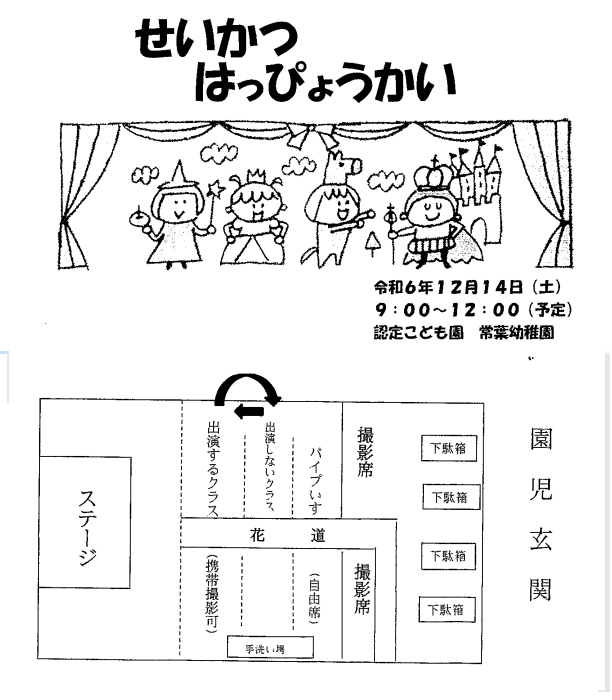 せいかつ
はっぴょうかい
令和6年12月14日（土）
9：00～12：00（予定）
認定こども園　常葉幼稚園
ステージ
出演するクラス
出演しないクラス
パイプいす
撮影席
花道
（携帯撮影可）
（自由席）
撮影席
手洗い場
下駄箱
下駄箱
下駄箱
下駄箱
園児玄関